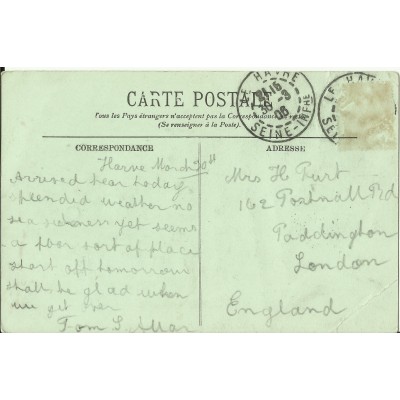 CARTE POSTALE
Tous les Pays étrangers n'acceptent pas la Correspondance
(Se renseigner à la Poste)
LE HAVRE
SEINE-INFRE
CORRESPONDANCE
ADRESSE
Havre March 30th
Arrived hear today
splendid weather no
sea sickness yet seems
a poor sort of place
start off tomorrow
shall be glad when
we get over
Tom
Mrs H
162 Portnall Rd
Paddington
London
England